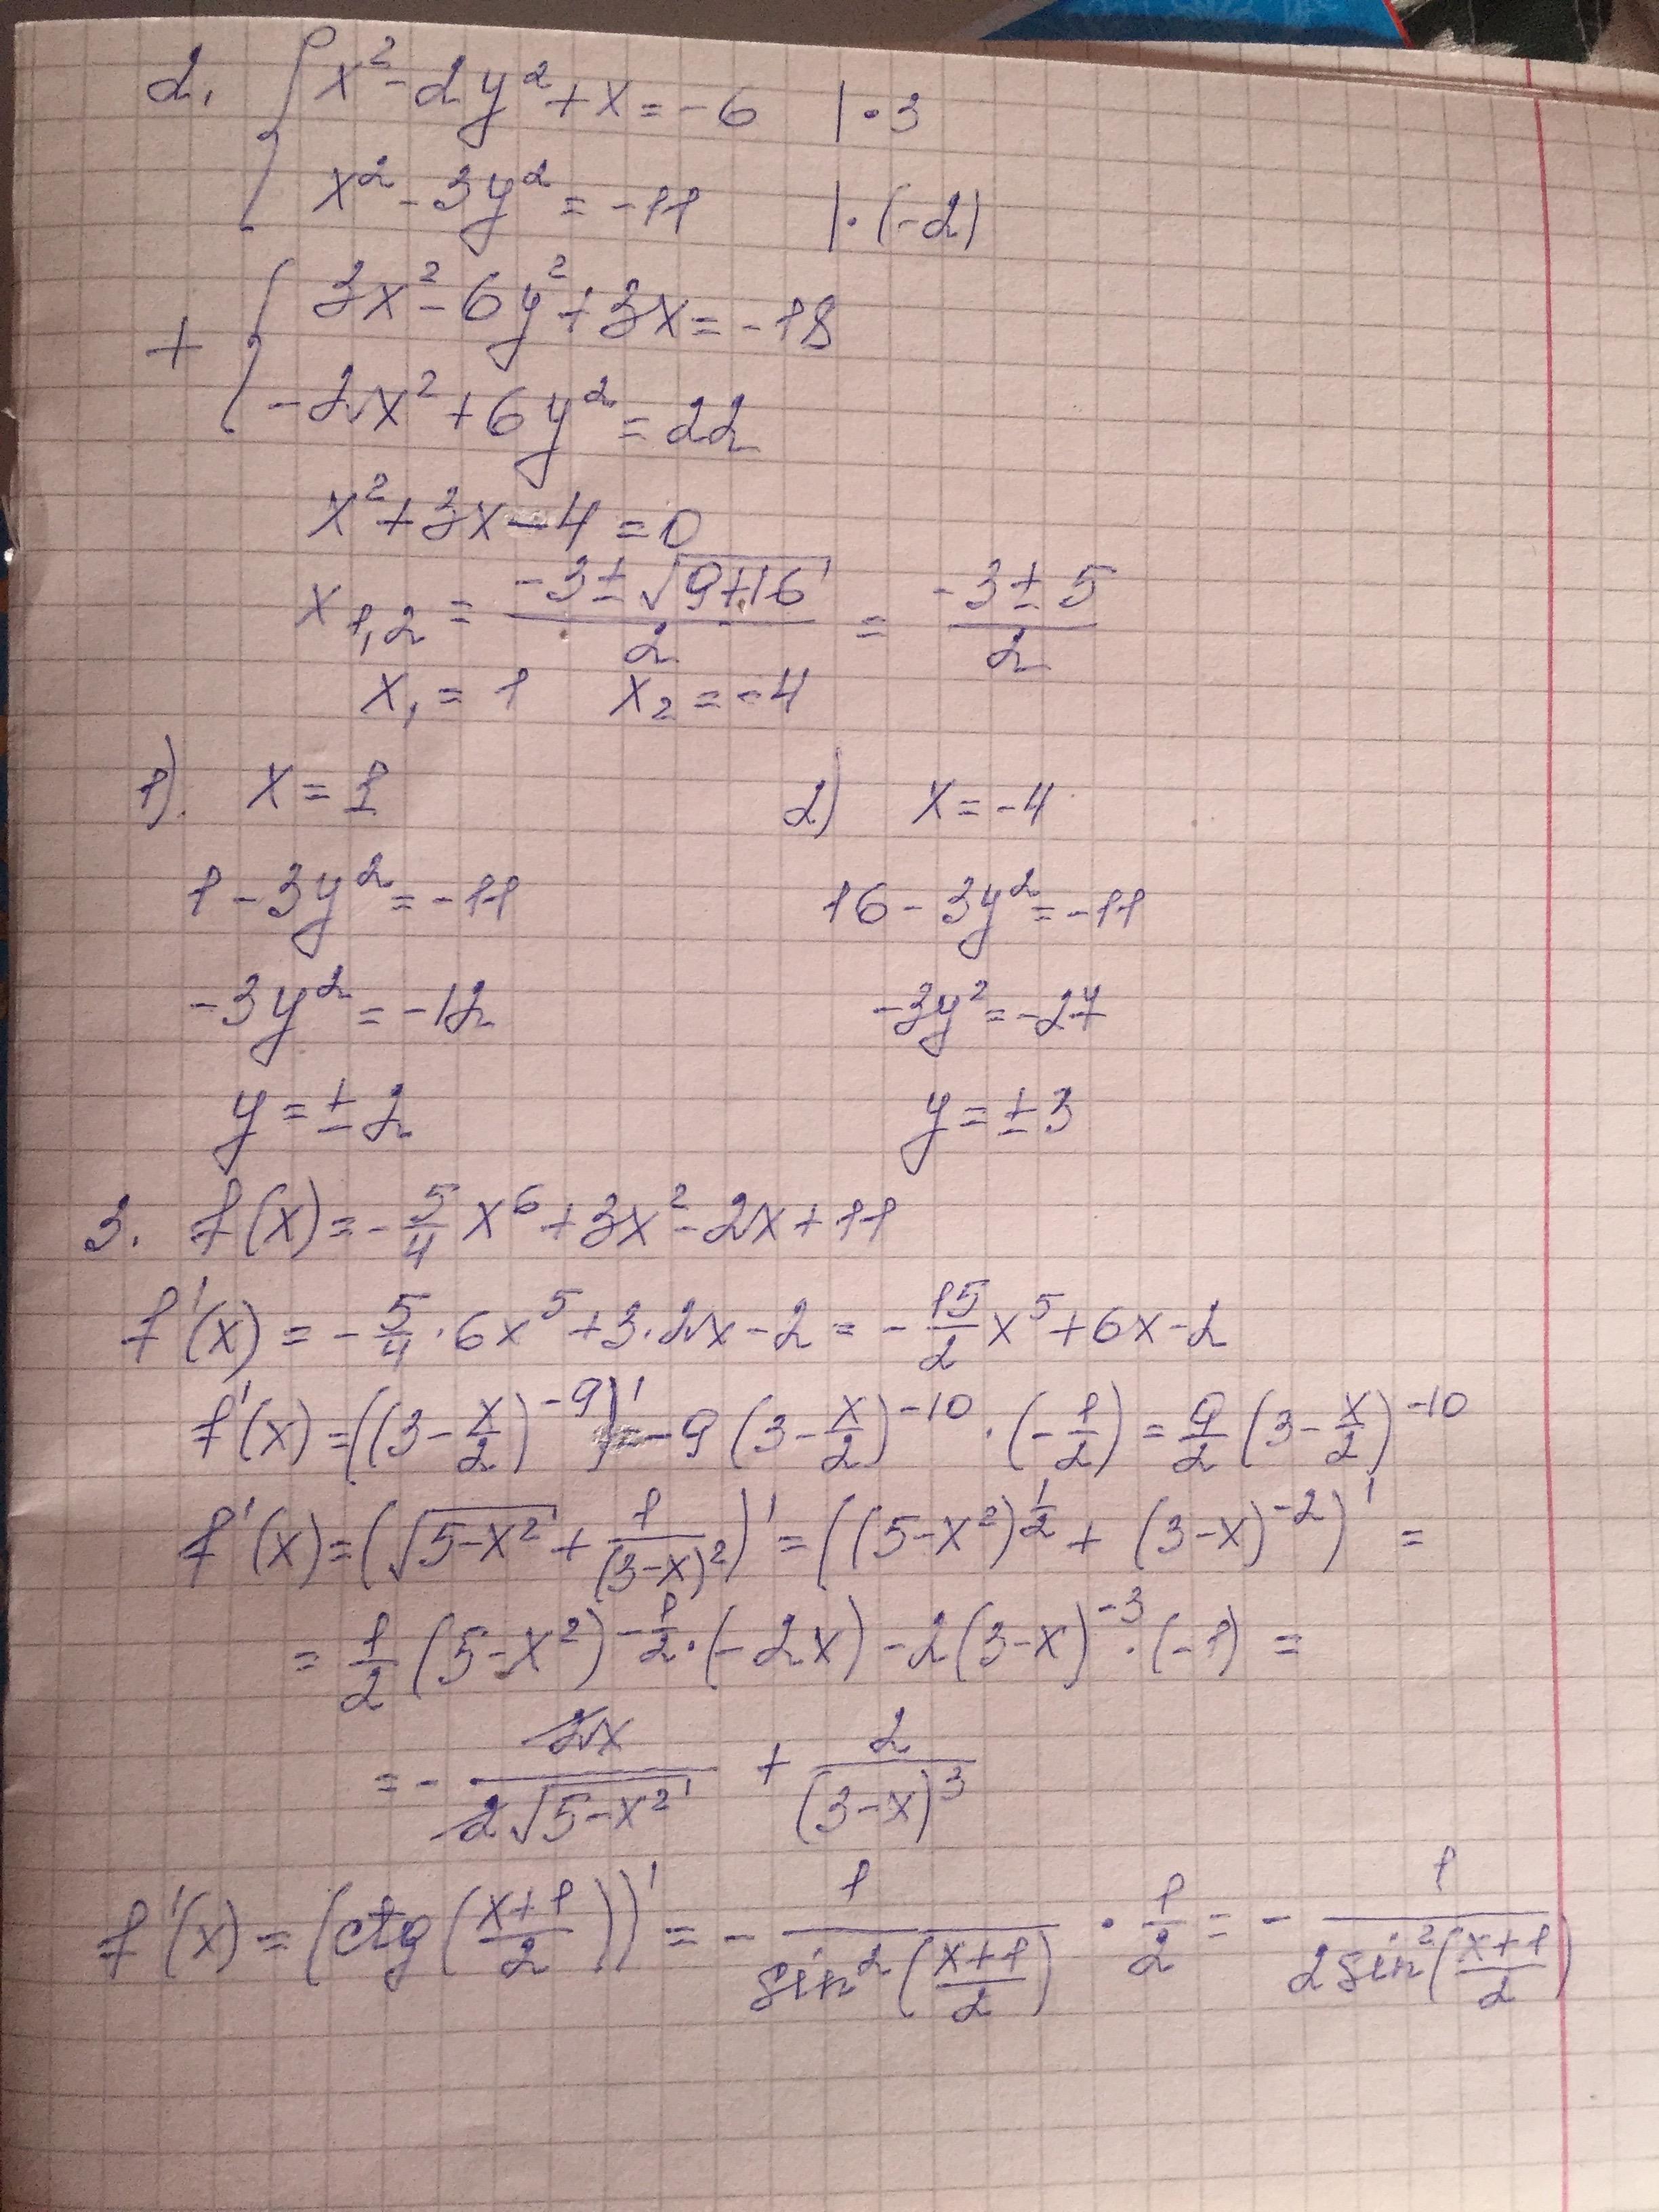 2. { x² - 2y² + x = -6 | · 3
x² - 3y² = -11 | · (-2)
+ { 3x² - 6y² + 3x = -18
-2x² + 6y² = 22
x² + 3x - 4 = 0
x₁,₂ = (-3 ± √(9+16))/2 = (-3 ± 5)/2
x₁ = 1 x₂ = -4
1). x = 1 2) x = -4
1 - 3y² = -11 16 - 3y² = -11
-3y² = -12 -3y² = -27
y = ± 2 y = ± 3
3. f(x) = - 5/4 x⁶ + 3x² - 2x + 11
f'(x) = - 5/4 · 6x⁵ + 3 · 2x - 2 = - 15/2 x⁵ + 6x - 2
f'(x) = ((3 - x/2)⁻⁹)' = -9 (3 - x/2)⁻¹⁰ · (- 1/2) = 9/2 (3 - x/2)⁻¹⁰
f'(x) = (√(5-x²) + 1/(3-x)²)' = ((5-x²)^(1/2) + (3-x)⁻²)' =
= 1/2 (5-x²)^(-1/2) · (-2x) - 2(3-x)⁻³ · (-1) =
= - 2x/(2√(5-x²)) + 2/(3-x)³
f'(x) = (ctg((x+1)/2))' = - 1/(sin²((x+1)/2)) · 1/2 = - 1/(2sin²((x+1)/2))